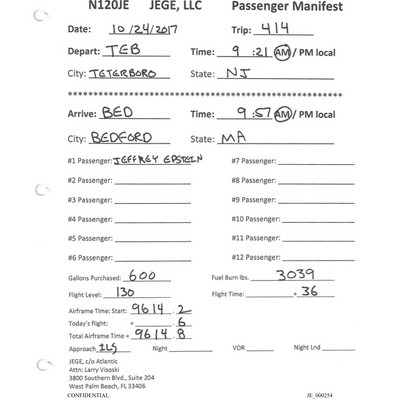 N120JE JEGE, LLC Passenger Manifest
Date: 10/24/2017 Trip: 414
Depart: TEB Time: 9:21 AM / PM local
City: TETERBORO State: NJ
************************************************************
Arrive: BED Time: 9:57 AM / PM local
City: BEDFORD State: MA
#1 Passenger: JEFFREY EPSTEIN #7 Passenger:
#2 Passenger: #8 Passenger:
#3 Passenger: #9 Passenger:
#4 Passenger: #10 Passenger:
#5 Passenger: #11 Passenger:
#6 Passenger: #12 Passenger:
Gallons Purchased: 600 Fuel Burn lbs. 3039
Flight Level: 130 Flight Time: + 36
Airframe Time: Start: 9614.2
Today's flight: + .6
Total Airframe Time = 9614.8
Approach ILS Night VOR Night Lnd
JEGE, c/o Atlantic
Attn: Larry Visoski
3800 Southern Blvd., Suite 204
West Palm Beach, FL 33406
CONFIDENTIAL JE_000254